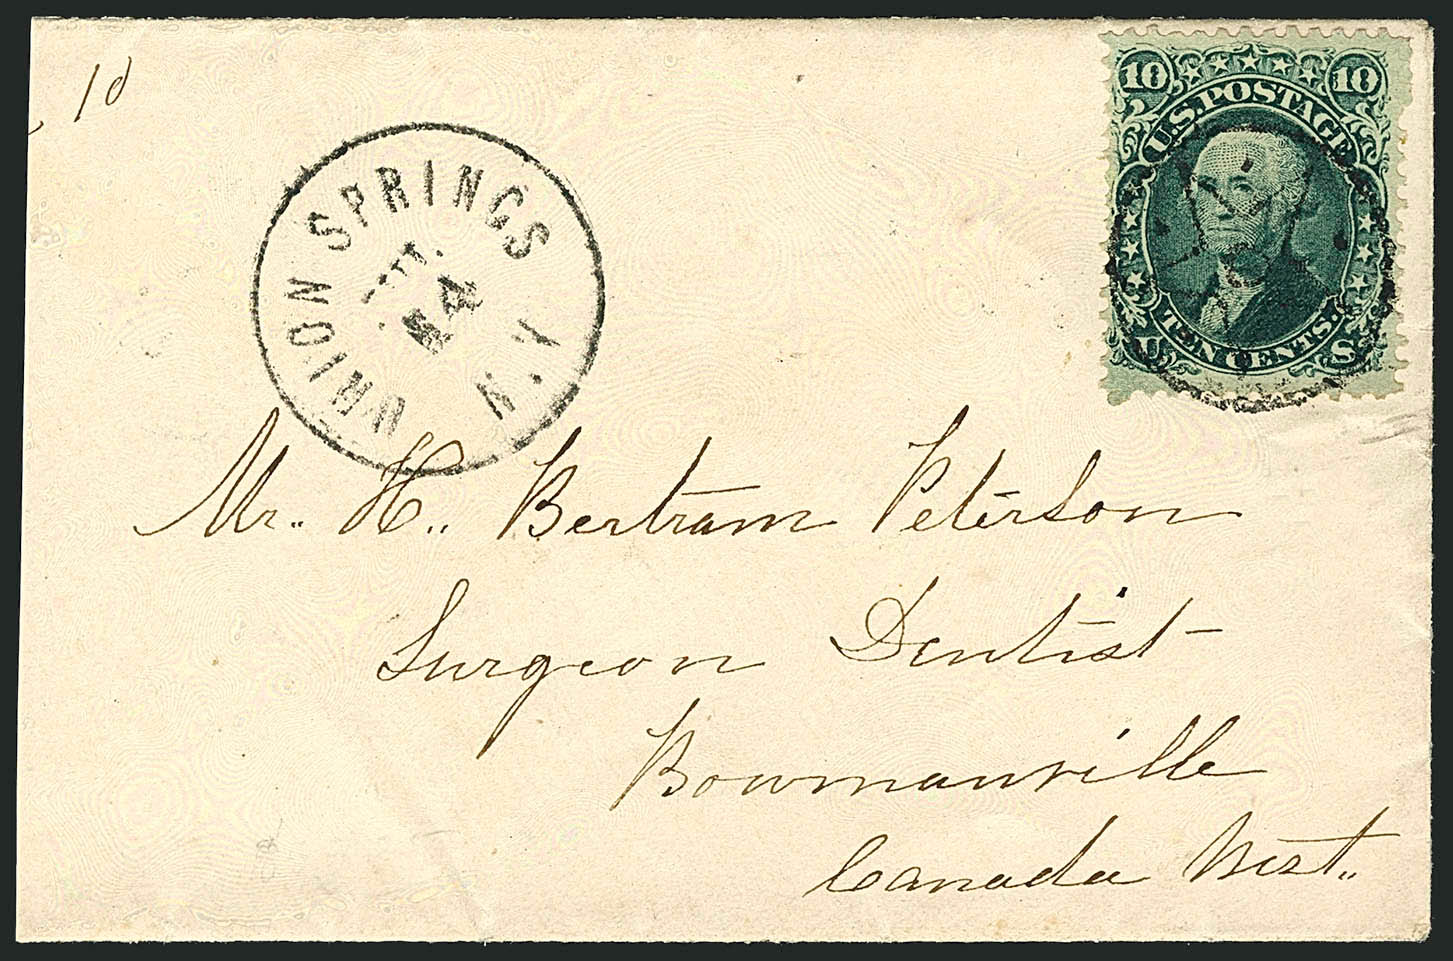 10
UNION SPRINGS
4
N.Y
10 10
U.S. POSTAGE
TEN CENTS.
U S
Mr.. H.. Bertram Peterson
Surgeon Dentist
Bowmanville
Canada West..